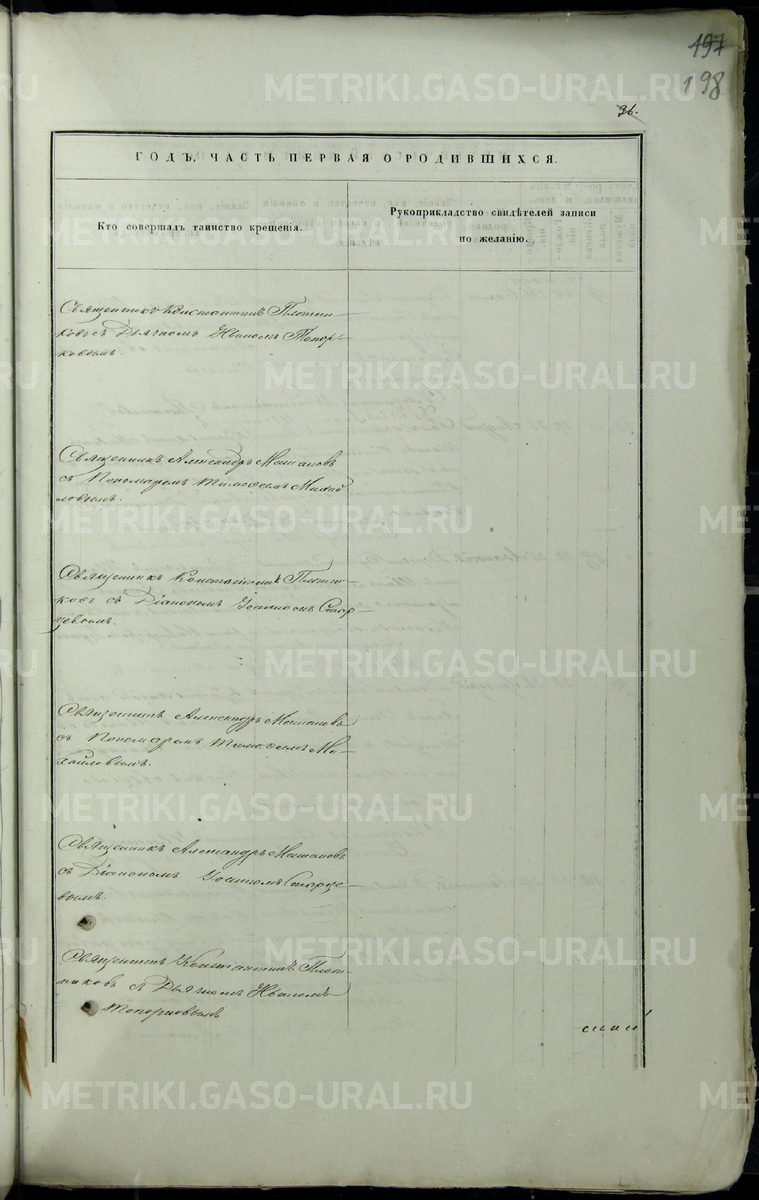 197
198
36.
ГОДЪ, ЧАСТЬ ПЕРВАЯ О РОДИВШИХСЯ.
Кто совершалъ таинство крещенія.
Рукоприкладство свидѣтелей записи
по желанію.
Священникъ Константинъ Плотни-
ковъ съ Дьячкомъ Иваномъ Топор-
ковымъ.
Священникъ Александръ
съ Пономаремъ Тимофеемъ Михай
ловымъ.
Священникъ Константинъ Плотни-
ковъ съ Діакономъ Іоанномъ Старце-
Священникъ Александръ
съ Пономаремъ Тимофеемъ Ми-
хайловымъ.
Священникъ Александръ
съ Діакономъ Іоанномъ Старце-
вымъ.
Священникъ Константинъ Плот-
никовъ съ Дьячкомъ Иваномъ
Топорковымъ.
METRIKI.GASO-URAL.RU